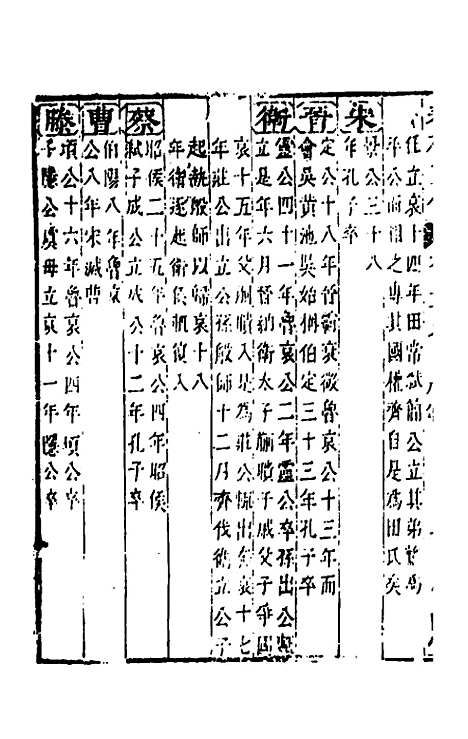 任立哀十四年田常弑簡公立其弟驁為
平公而相之專其國權齊自是為田氏矣
宋
景公三十八
年孔子卒
晉
定公十八年晉衛哀徵魯哀公十三年而
會吳黃池吳始稱伯定三十三年孔子卒
衛
靈公四十一年魯哀公二年靈公卒孫出公輒
立是年六月晉納衛太子蒯聵子戚父子爭國
哀十五年父蒯聵入是為莊公輒出奔哀十七
年莊公出立公孫般師十二月齊伐衛立公子
起執般師以歸哀十八
年衛逐起衛侯輒復入
蔡
昭侯二十五年魯哀公四年昭侯
弑子成公立成公十二年孔子卒
曹
伯陽八年魯哀
公八年宋滅曹
滕
頃公十六年魯哀公四年頃公卒
子隱公虞毋立哀十一年隱公卒